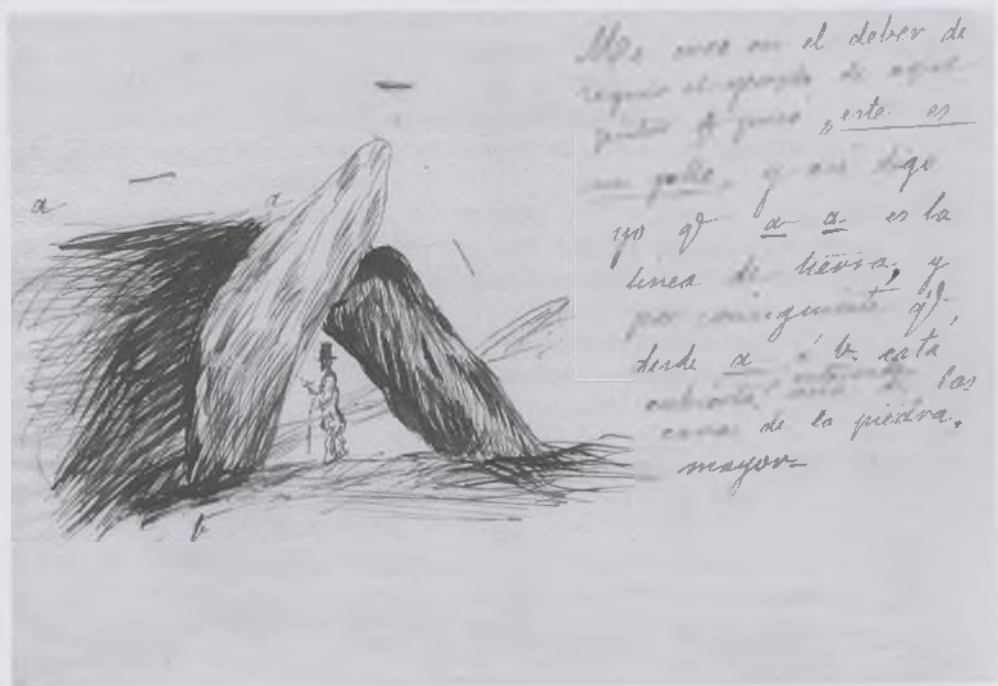 a
a
b
Me creo en el deber de
seguir el ejemplo de aquel
pintor q̃ puso, "este es
un gallo, y así digo
yo q̃ a a es la
linea de tierra, y
por consiguiente q̃,
desde a, b, está
cubierta, una de las
caras de la piedra
mayor